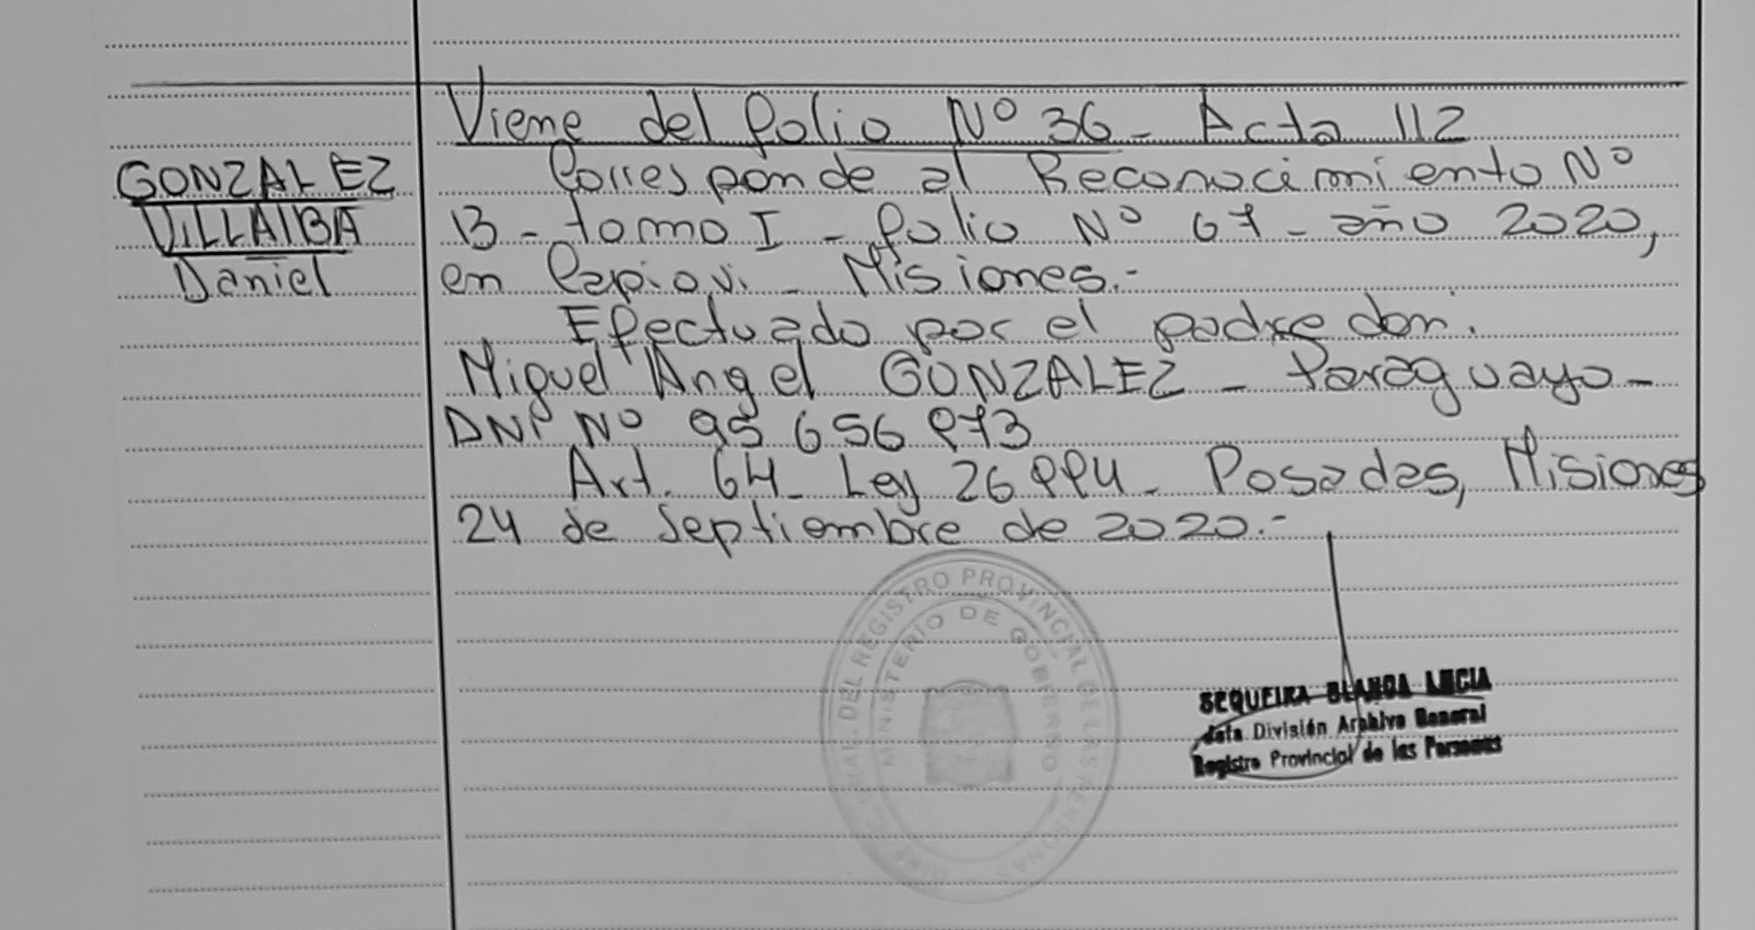 Viene del folio Nº 36 - Acta 112
GONZALEZ
VILLALBA
Daniel
Corresponde al Reconocimiento Nº
13 - tomo I - folio Nº 67 - año 2020,
en Capiovi - Misiones.-
Efectuado por el padre don.
Miguel Angel GONZALEZ - Paraguayo -
DNI Nº 95 656 873
Art. 64 - Ley 26994 - Posadas, Misiones
24 de Septiembre de 2020.-
DEL REGISTRO PROVINCIAL DE LAS PERSONAS
MINISTERIO DE GOBIERNO
SEQUEIRA BLANCA LUCIA
Jefa División Archivo General
Registro Provincial de las Personas